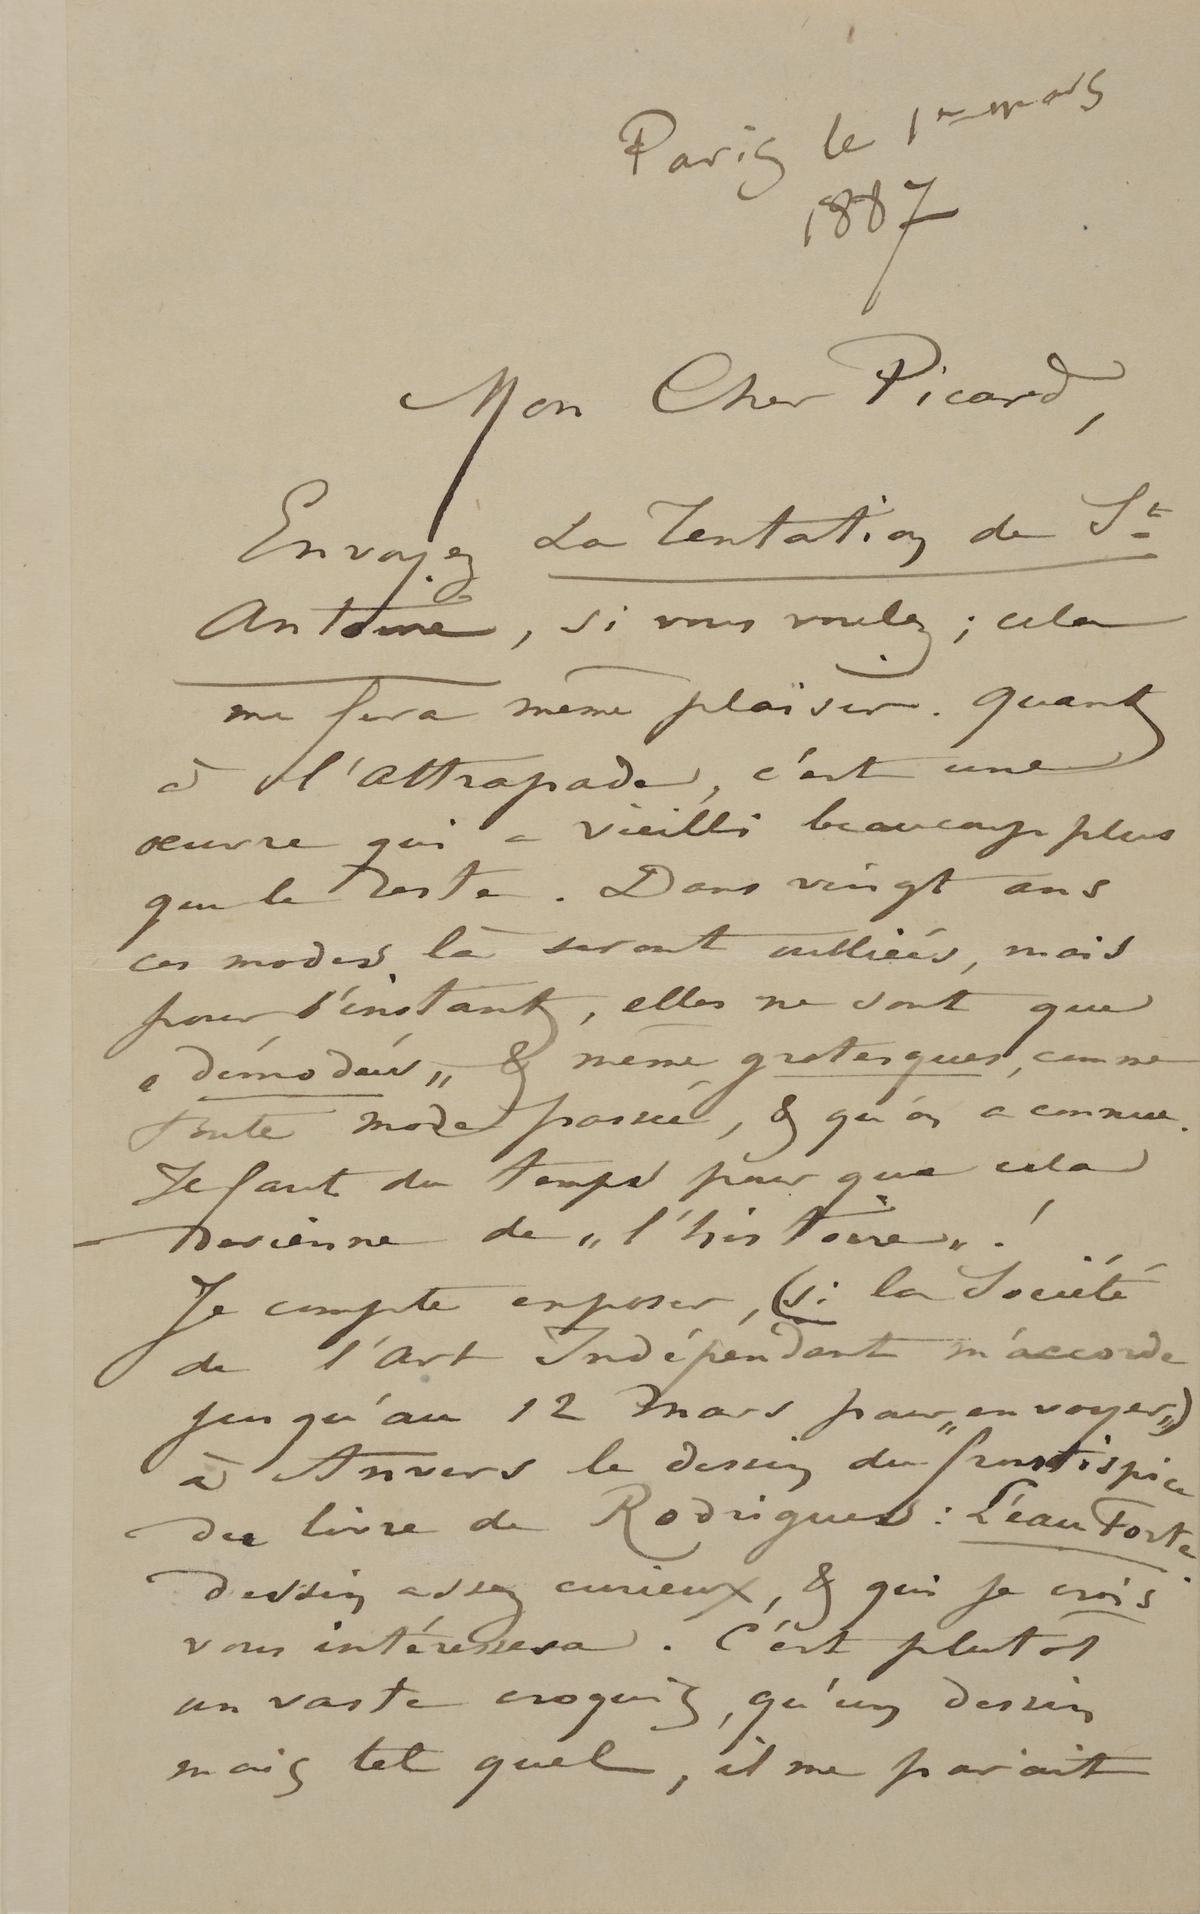 Paris le 1er mars
1887
Mon Cher Picard,
Envoyez La Tentation de St
Antoine, si vous voulez ; cela
me fera même plaisir. Quant
à l'Attrapade, c'est une
œuvre qui a vieilli beaucoup plus
que le reste. Dans vingt ans
ces modes là seront oubliées, mais
pour l'instant, elles ne sont que
« démodées „ & même grotesques, comme
toute mode passée, & qu'on a connue.
Il faut du temps pour que cela
devienne de „ l'histoire „ !
Je compte exposer, (si la Société
de l'Art Indépendant m'accorde
jusqu'au 12 Mars pour „ envoyer „)
à Anvers le dessin du frontispice
du livre de Rodrigues : L'eau Forte.
dessin assez curieux, & qui je crois
vous intéressera. C'est plutot
un vaste croquis, qu'un dessin
mais tel quel, il me parait